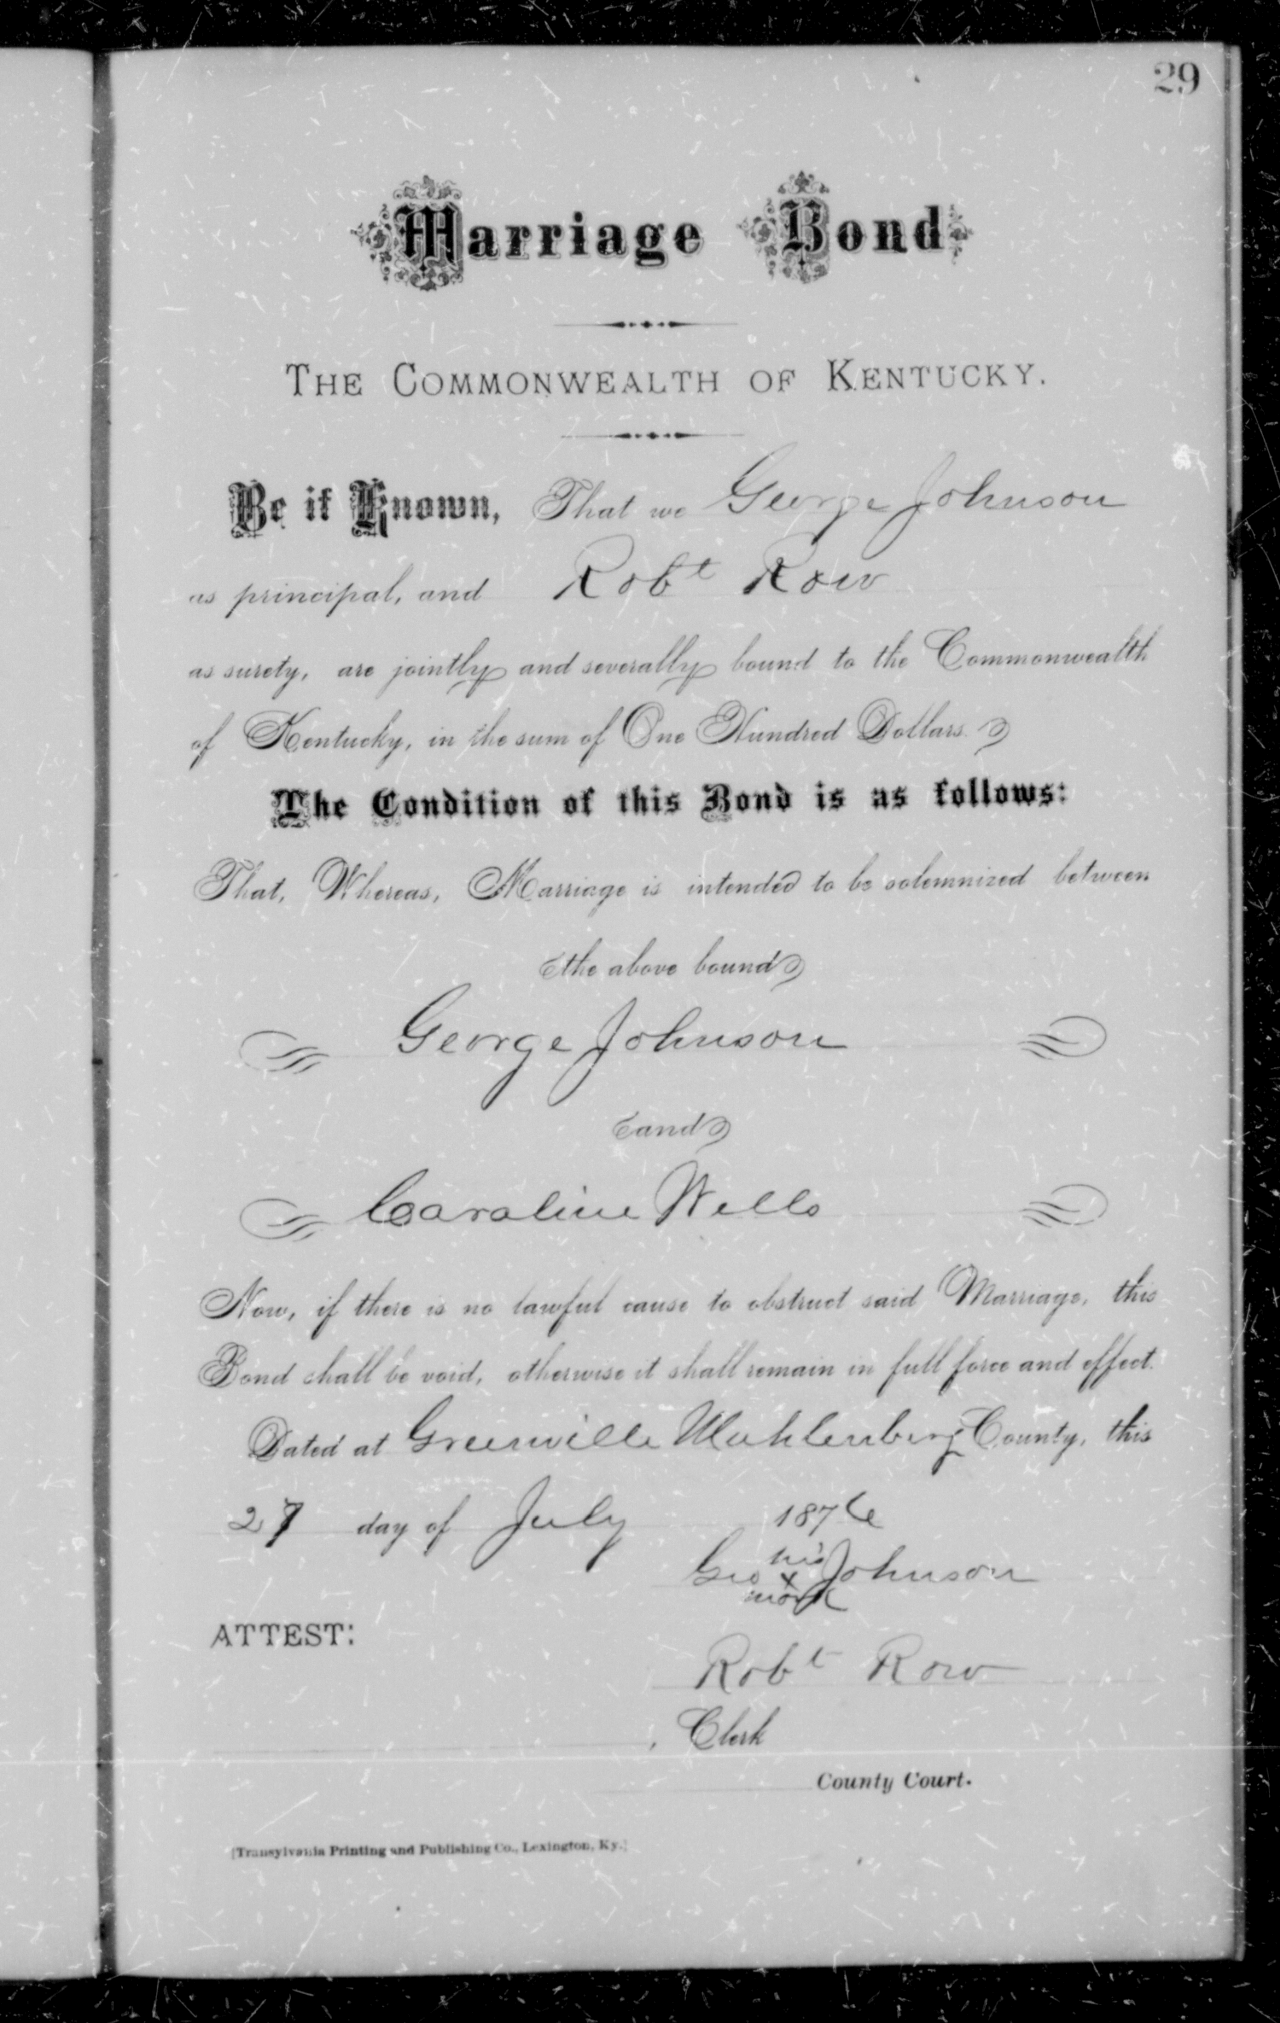 29
Marriage Bond
THE COMMONWEALTH OF KENTUCKY.
Be it Known, That we George Johnson
as principal, and Robt Row
as surety, are jointly and severally bound to the Commonwealth
of Kentucky, in the sum of One Hundred Dollars.
The Condition of this Bond is as follows:
That, Whereas, Marriage is intended to be solemnized between
the above bound
George Johnson
and
Caroline Wells
Now, if there is no lawful cause to obstruct said Marriage, this
Bond shall be void, otherwise it shall remain in full force and effect.
Dated at Greenville Muhlenberg County, this
27 day of July 1876
his
Geo x Johnson
mark
ATTEST:
Robt Row
, Clerk
County Court.
[Transylvania Printing and Publishing Co., Lexington, Ky.]